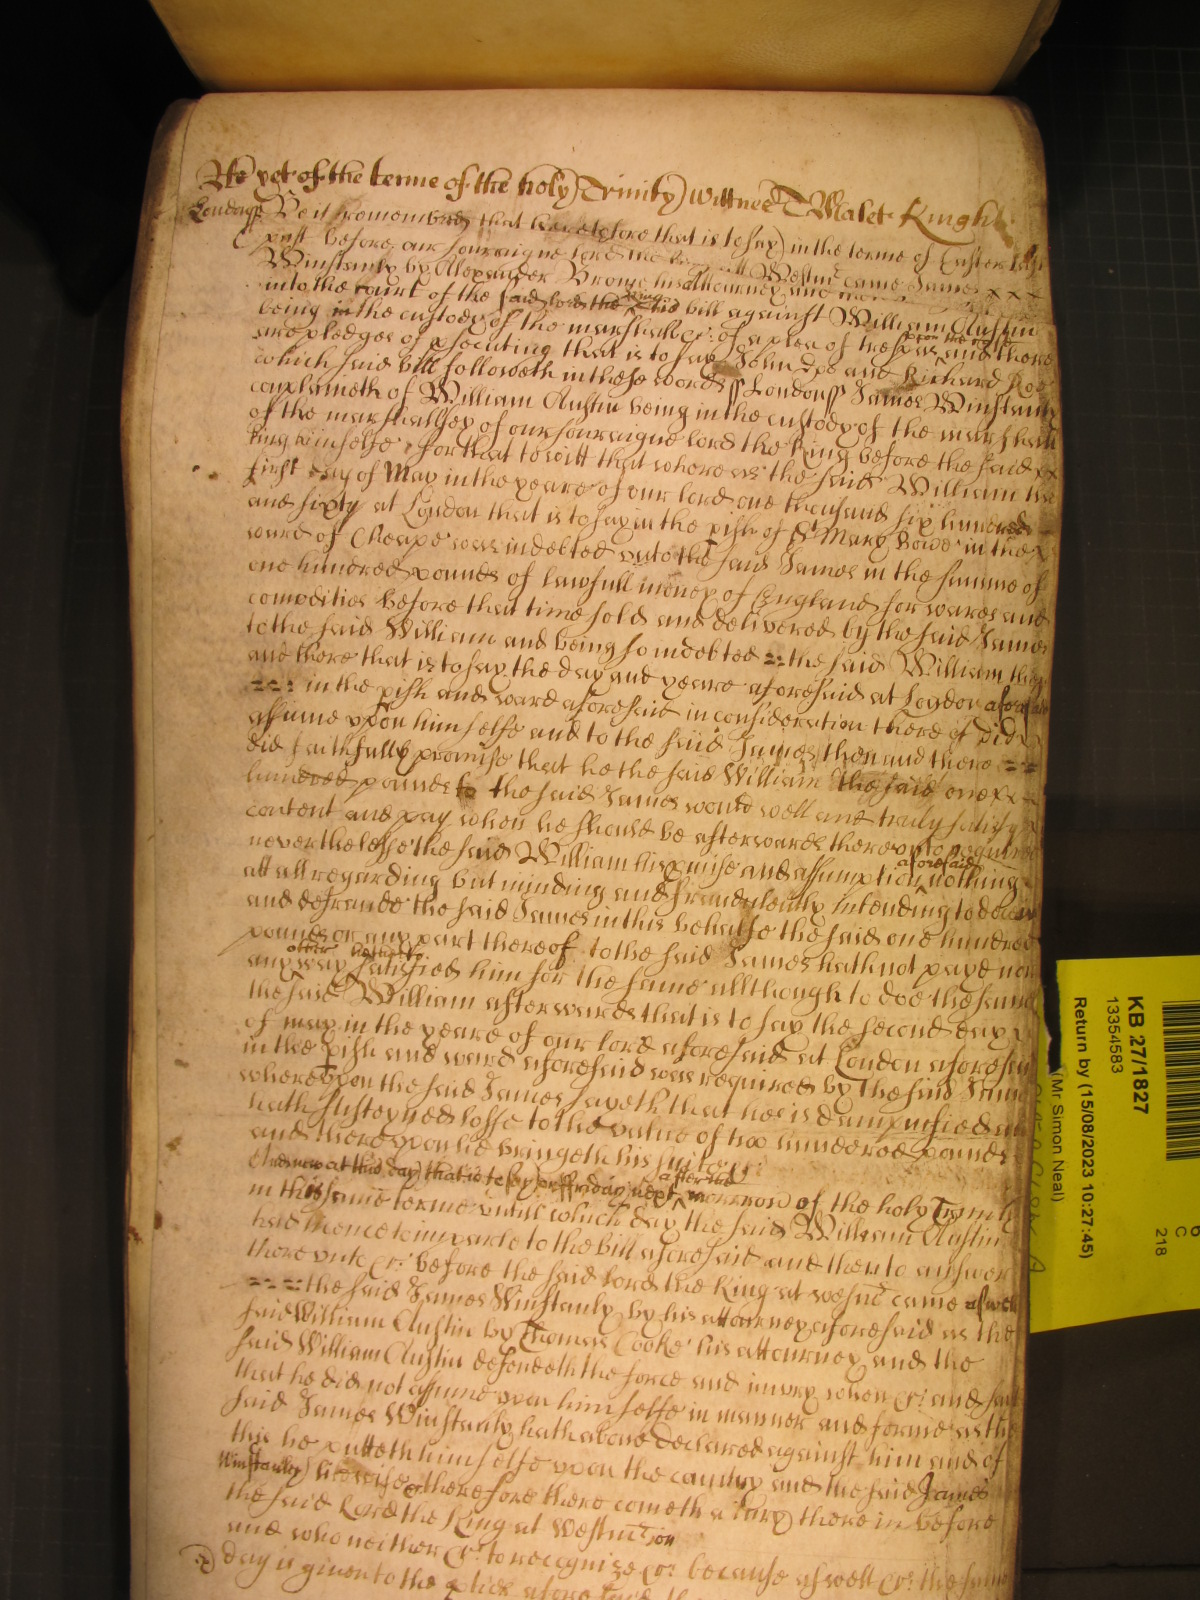 As yet of the terme of the holy Trinity Wittnes T Malet Knight
Londonss Be it remembred that heretofore that is to say in the terme of Easter last
past before our soveraigne lord the King att Westmr came James x x x
Winstanly by Alexander Brome his Attourney and
into the court of the said lord the King his bill against William Austin
being in the custody of the marshall &c: of a plea of trespas upon the case and there
are pledges of psecuting that is to say John Doe and Richard Roe
which said bill followeth in these words ss Londonss James Winstanly
complaineth of William Austin being in the custody of the marshall
of the marshallsey of our soveraigne lord the King before the said x x
King himselfe for that to witt that whereas the said William the
first day of May in the yeare of our lord one thousand six hundred
and sixty at London that is to say in the pish of St Mary Bowe in the
ward of Cheape was indebted unto the said James in the summe of
one hundred pounds of lawfull money of England for wares and
comodities before that time sold and delivered by the said James
to the said William and being so indebted the said William then
and there that is to say the day and yeare aforesaid at London aforesaid
in the pish and ward aforesaid in consideration thereof did
assume upon himselfe and to the said James then and there
did faithfully promise that he the said William the said one x x
hundred pounds to the said James would well and truly satisfy
content and pay when he should be afterwards thereunto required
neverthelesse the said William his pmise and assumption aforesaid nothing
att all regarding but minding and fraudulently intending to deceive
and defraude the said James in this behalfe the said one hundred
pounds or any part thereof to the said James hath not payd nor
any way other satisfied him for the same allthough to doe the same
the said William afterwards that is to say the second day
of may in the yeare of our lord aforesaid at London aforesaid
in the pish and ward aforesaid was required by the said James
whereupon the said James sayeth that hee is damnified and
hath susteyned losse to the value of two hunderod pounds
and thereupon he bringeth his suite
And now at this day that is to say on ffriday next after the morrow of the holy Trinity
in this same terme untill which day the said William Austin
had licence to imparle to the bill aforesaid and then to answer
there unto &c: before the said lord the King at westmr came aswell
the said James Winstanly by his attourney aforesaid as the
said William Austin by Thomas Cooke his attourney and the
said William Austin defendeth the force and iniury when &c: and saith
that he did not assume upon himselfe in manner and forme as the
said James Winstanly hath above declared against him and of
this he putteth himselfe upon the country and the said James
Winstanley likewise &c therefore there cometh a iury there in before
the said Lord the King at Westmr on
and who neither &c: to recognize &c: because aswell &c: the same
day is given to the pties aforesaid
KB 27/1827
13354583
Return by (15/08/2023 10:27:45)
(Mr Simon Neal)
C
218